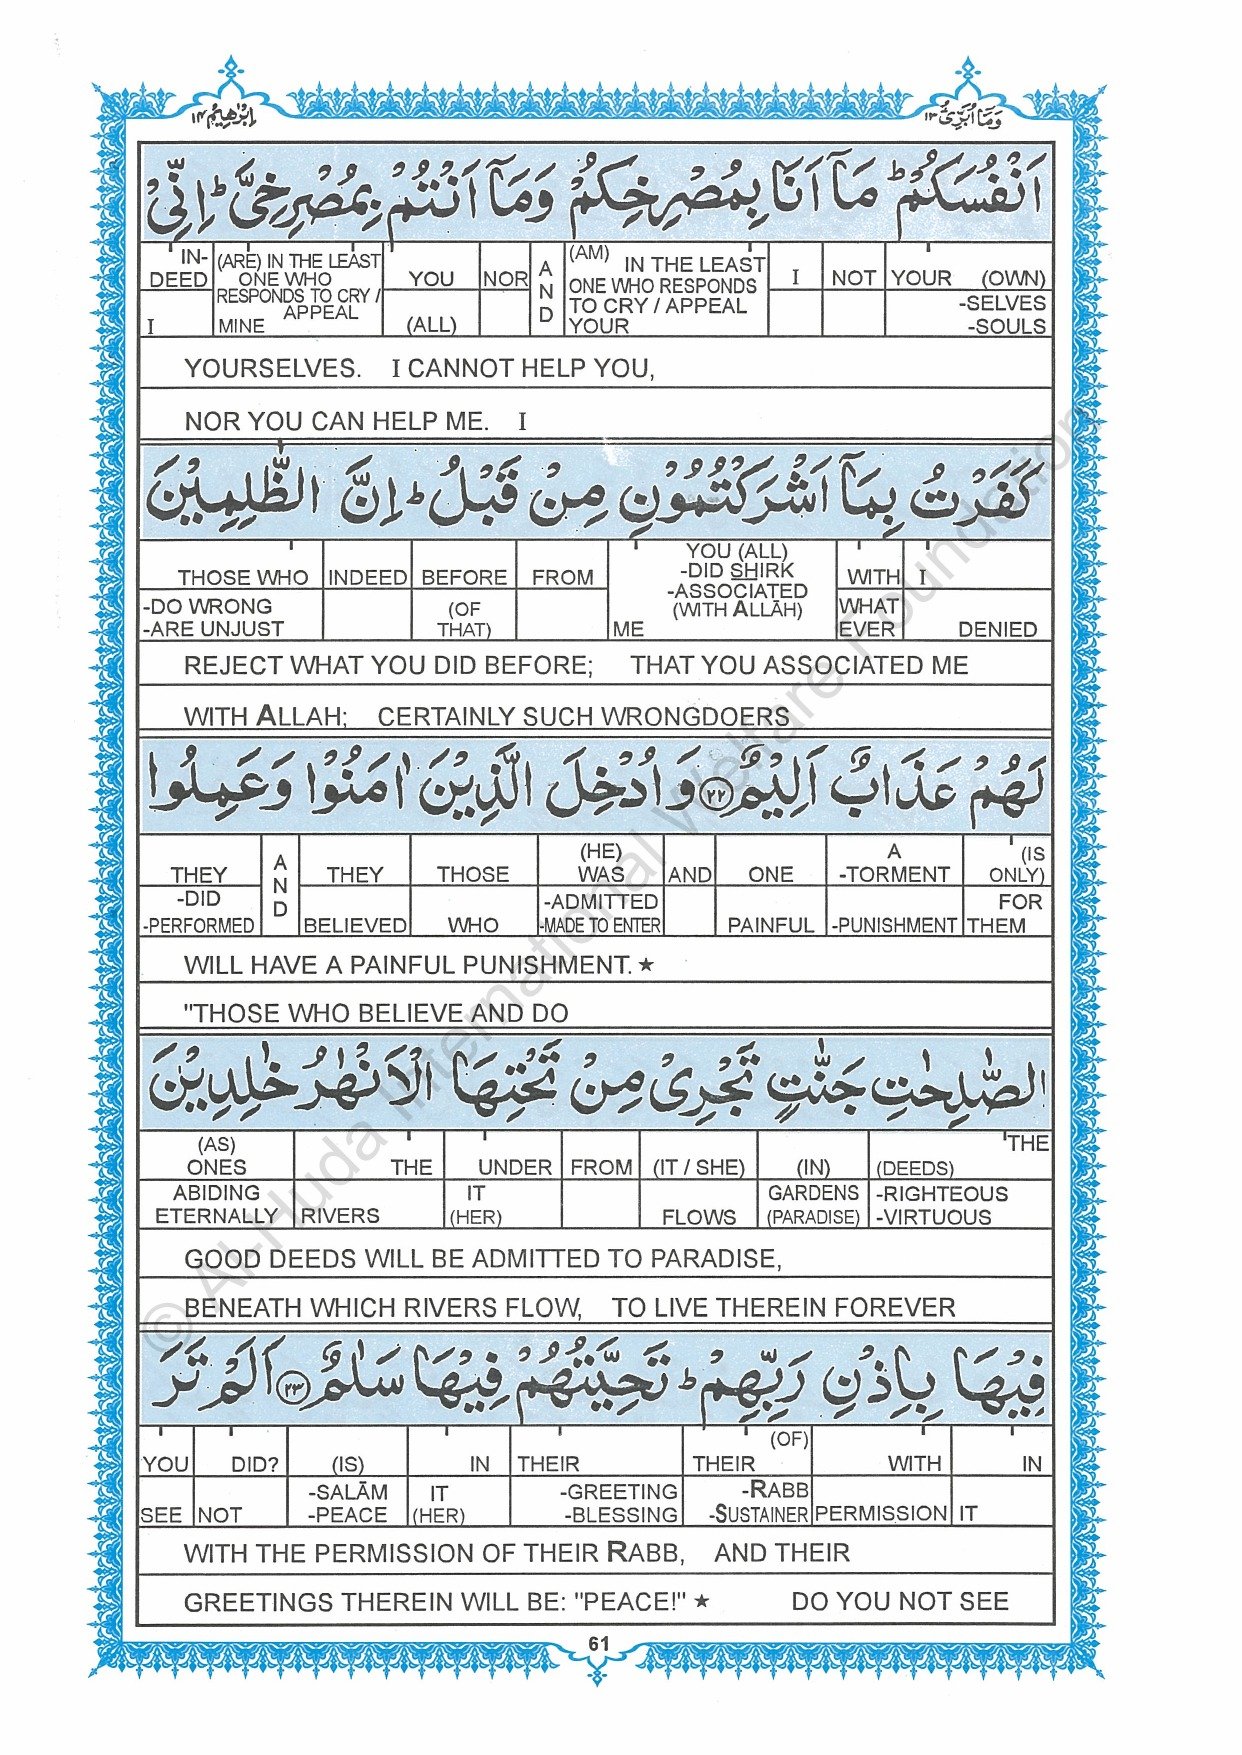 وَمَآ اُبَرِّئُ ١٣
اِبْرٰهِيْمُ ١٤
اَنْفُسَكُمْ ؕ مَآ اَنَا بِمُصْرِخِكُمْ وَمَآ اَنْتُمْ بِمُصْرِخِيَّ ؕ اِنِّيْ
IN- (ARE) IN THE LEAST YOU NOR AND (AM) IN THE LEAST I NOT YOUR (OWN)
DEED ONE WHO ONE WHO RESPONDS -SELVES
RESPONDS TO CRY / TO CRY / APPEAL -SOULS
I APPEAL MINE (ALL) YOUR
YOURSELVES. I CANNOT HELP YOU,
NOR YOU CAN HELP ME. I
كَفَرْتُ بِمَآ اَشْرَكْتُمُوْنِ مِنْ قَبْلُ ؕ اِنَّ الظّٰلِمِيْنَ
YOU (ALL)
THOSE WHO INDEED BEFORE FROM -DID SHIRK WITH I
-DO WRONG (OF -ASSOCIATED WHAT
-ARE UNJUST THAT) ME (WITH ALLĀH) EVER DENIED
REJECT WHAT YOU DID BEFORE; THAT YOU ASSOCIATED ME
WITH ALLAH; CERTAINLY SUCH WRONGDOERS
لَهُمْ عَذَابٌ اَلِيْمٌ ٢٢ وَاُدْخِلَ الَّذِيْنَ اٰمَنُوْا وَعَمِلُوا
(HE) A (IS
THEY AND THEY THOSE WAS AND ONE -TORMENT ONLY)
-DID -ADMITTED FOR
-PERFORMED BELIEVED WHO -MADE TO ENTER PAINFUL -PUNISHMENT THEM
WILL HAVE A PAINFUL PUNISHMENT. ★
"THOSE WHO BELIEVE AND DO
الصّٰلِحٰتِ جَنّٰتٍ تَجْرِيْ مِنْ تَحْتِهَا الْاَنْهٰرُ خٰلِدِيْنَ
(AS) THE
ONES THE UNDER FROM (IT / SHE) (IN) (DEEDS)
ABIDING IT GARDENS -RIGHTEOUS
ETERNALLY RIVERS (HER) FLOWS (PARADISE) -VIRTUOUS
GOOD DEEDS WILL BE ADMITTED TO PARADISE,
BENEATH WHICH RIVERS FLOW, TO LIVE THEREIN FOREVER
فِيْهَا بِاِذْنِ رَبِّهِمْ ؕ تَحِيَّتُهُمْ فِيْهَا سَلٰمٌ ٢٣ اَلَمْ تَرَ
(OF)
YOU DID? (IS) IN THEIR THEIR WITH IN
-SALĀM IT -GREETING -RABB
SEE NOT -PEACE (HER) -BLESSING -SUSTAINER PERMISSION IT
WITH THE PERMISSION OF THEIR RABB, AND THEIR
GREETINGS THEREIN WILL BE: "PEACE!" ★ DO YOU NOT SEE
61
© Al-Huda International Welfare Foundation